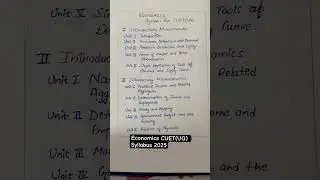 Economics
Syllabus for CUET(UG)
I Introductory Microeconomics
Unit I Introduction
Unit II Consumer Behaviour and Demand
Unit III Producer Behaviour and Supply
Unit IV Forms of Market and Price
Determination
Unit V Simple Application of Tools of
Demand and Supply Curve
II Introductory Macroeconomics
Unit I National Income and Related
Aggregates
Unit II Determination of Income and
Employment
Unit III Money and Banking
Unit IV Government Budget and the
Economy
Unit V Balance of Payments
Economics CUET(UG)
Syllabus 2025